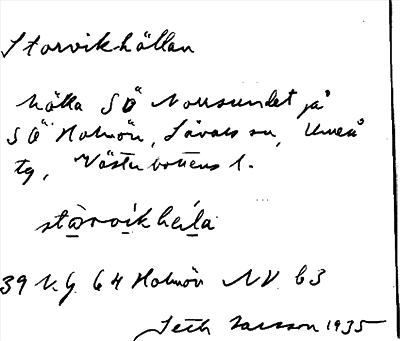 Storvikhällan
hälla SÖ Norrsundet på
SÖ Holmön, Sävars sn, Umeå
tg, Västerbottens l.
stàrvikhella
39 V.g. 64 Holmön NV. 63
Seth Larsson 1935